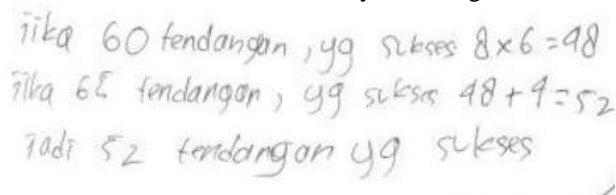 jika 60 tendangan, yg sukses 8x6=48
jika 65 tendangan, yg sukses 48+4=52
jadi 52 tendangan yg sukses